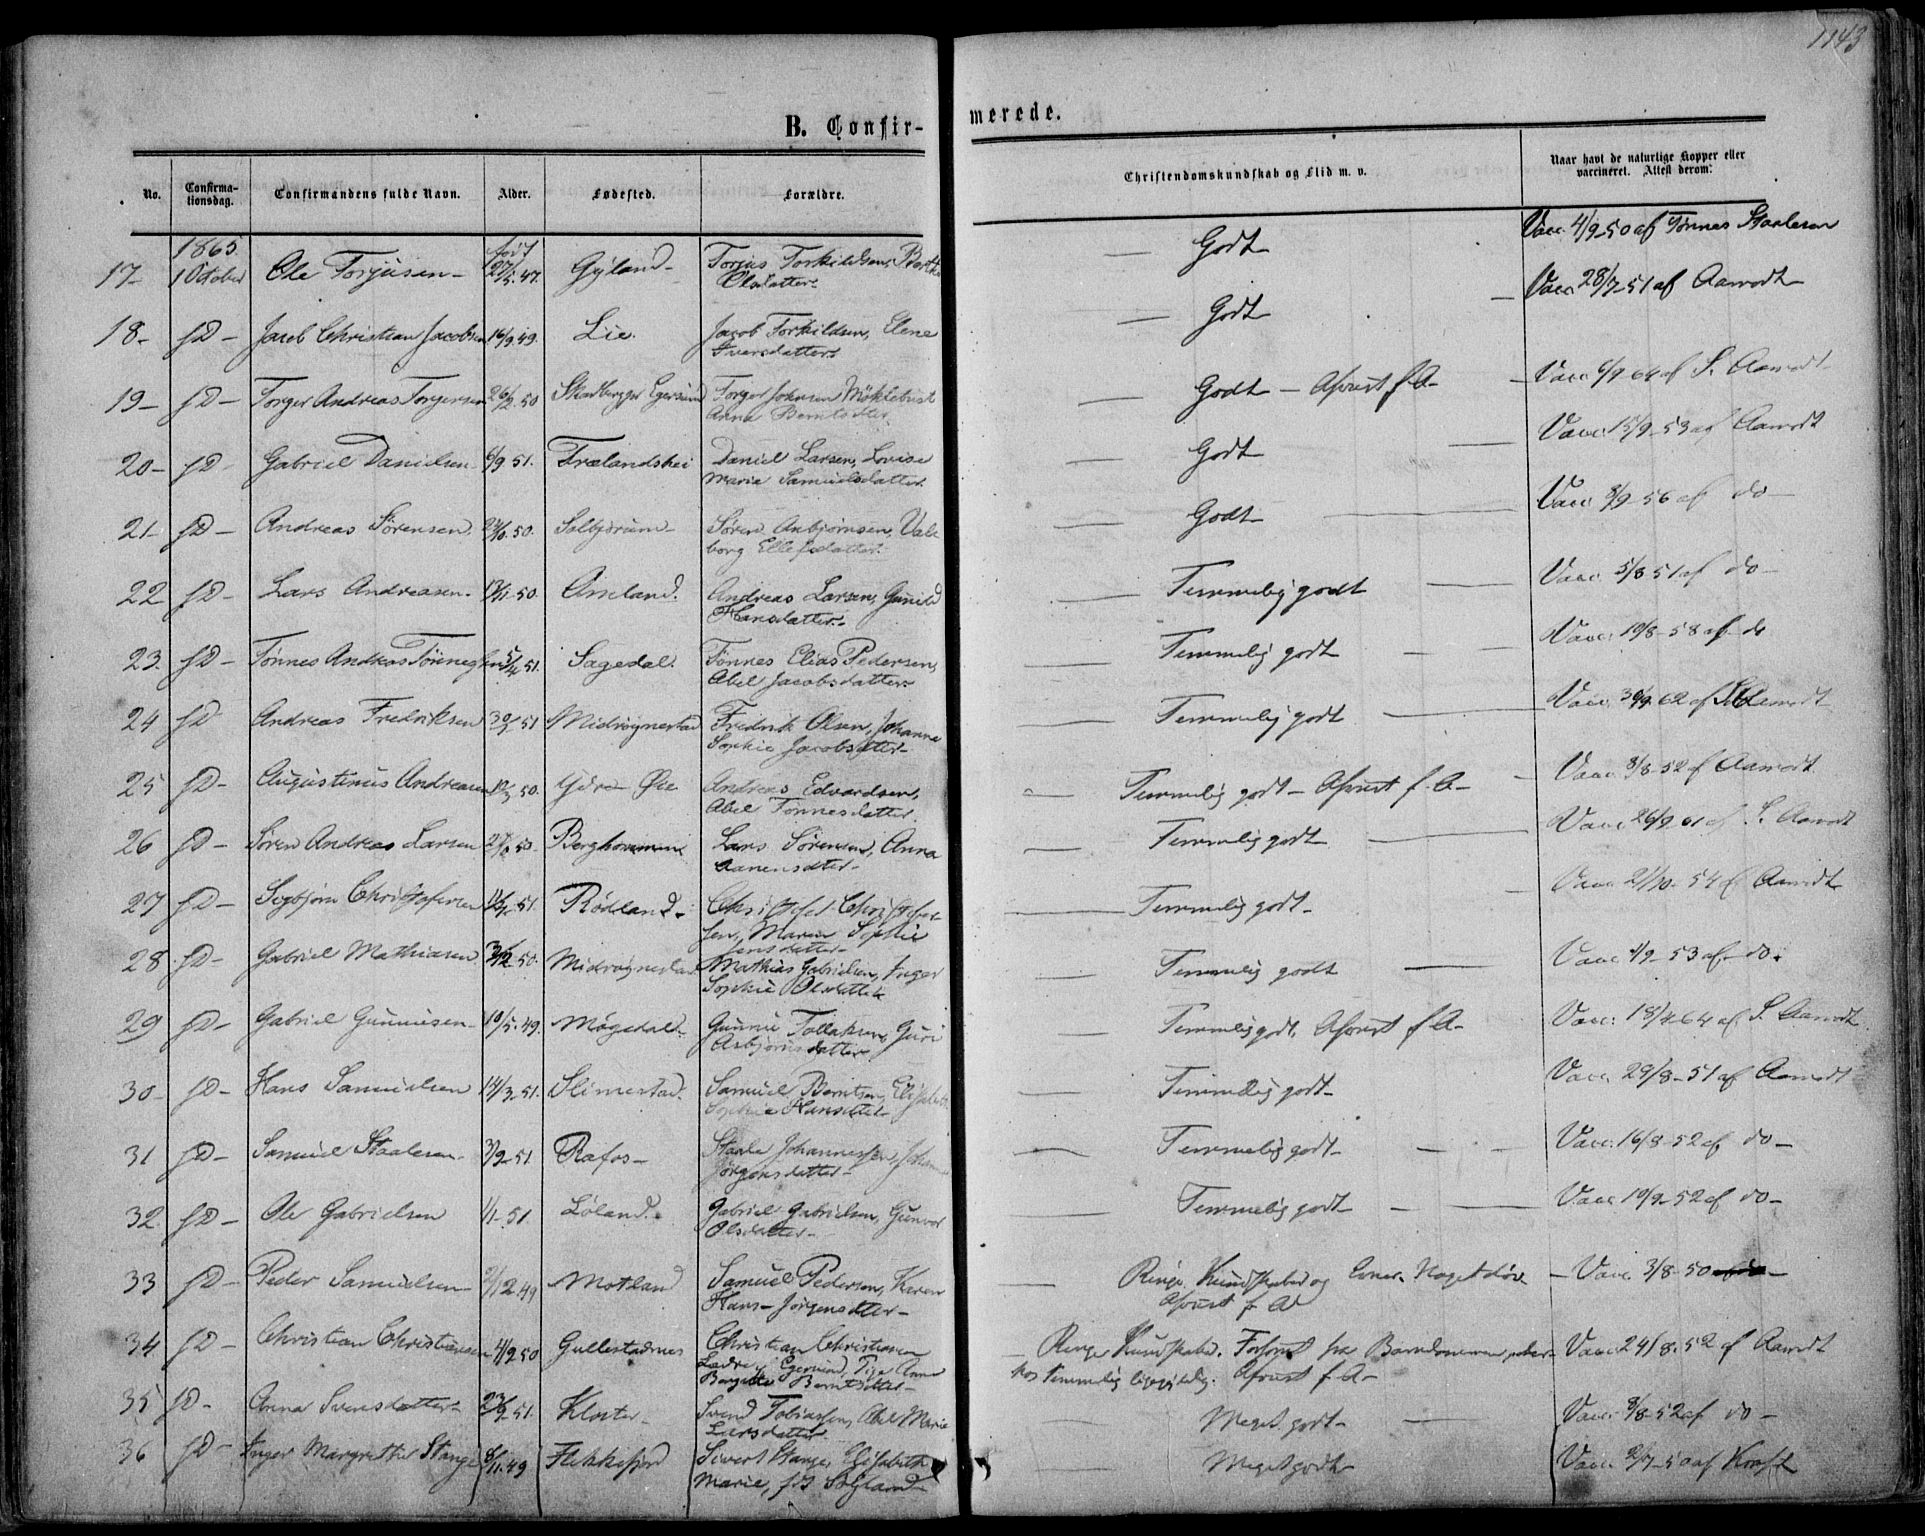 1143
B. Confir-
merede.
No.
Confirma-
tionsdag.
Confirmandens fulde Navn.
Alder.
Fødested.
Forældre.
Christendomskundskab og Flid m. v.
Naar havt de naturlige Kopper eller
vaccineret. Attest derom.
1865 født
17- 1 October Ole Torjusen- 27/5.47. Gyland- Torjus Torkildsen, Berthe
Olsdatter-
Godt Vacc. 4/9-50 af Tønnes Staalesen
18- sD- Jacob Christian Jacobsen 16/9.49. Lie. Jacob Torkildsen, Elene
Iversdatter-
Godt Vacc. 28/7-51 af Aamodt
19- sD- Torger Andreas Torgersen 26/2.50 Egersund Torger Johnsen Møklebust
Anna Berntsdtr.
Godt - f A- Vacc. 64 af S. Aamodt
20- sD- Gabriel Danielsen 6/9 51. Frælandshei Daniel Larsen, Lovise
Maria Samuelsdatter
Godt Vacc. 15/9-53 af Aamodt
21- sD- Andreas Sørensen 50. Solbjørum- Søren Asbjørnsen, Val-
borg Ellefsdatter-
Godt Vacc. 8/9-56 af do-
22 sD- Lars Andreasen- 13/11.50. Aneland. Andreas Larsen, Gunild
Hansdatter-
Temmelig godt Vacc. 5/8 51 af do-
23. sD- Tønnes Andreas Tønnessen 5/4.51. Sagedal. Tønnes Elias Pedersen,
Abel Jacobsdatter
Temmelig godt Vacc. 19/8-58 af do
24 sD Andreas Fredriksen 51 Midrøgnestad Fredrik Olsen, Johanne
Sophie Jacobsdtter-
Temmelig godt Vacc. 62 af Aamodt
25 sD- Augustinus Andreasen 50. Ydre Øie Andreas Edvardsen,
Abel Tønnesdatter.
Temmelig godt- f. A- Vacc. 8/8-52 af Aamodt
26 sD- Søren Andreas Larsen 50. Berghommen Lars Sørensen, Anna
Aanensdtter-
Temmelig godt Vacc. 26/9-61 af S. Aamodt
27 sD- Sigbjørn Christofersen 51. Rødland- Christofel Christofer-
sen, Maren Sophie
Jensdatter-
Temmelig godt- Vacc. 21/10-54 af Aamodt
28 sD- Gabriel Mathiasen 50. Midrøgnestad Mathias Gabrielsen, Inger
Sophie Olsdatter
Temmelig godt Vacc. 1/9-53 af do.
29 sD- Gabriel Gunnusen- 10/5.49. Møgedal- Gunnu Tollaksen, Guri
Asbjørnsdatter
Temmelig godt. f A- Vacc. 18/4 64 af S. Aamodt
30- sD- Hans Samuelsen 14/3.51. Slimestad. Samuel Berntsen, Elisabeth
Sophie Hansdtter-
Temmelig godt- Vacc. 29/8-51 af Aamodt
31 sD- Samuel Staalesen- 51 Rafos- Staale Johannessen, Johanne
Jørgensdatter-
Temmelig godt- Vacc. 16/8-52 af do-
32 sD- Ole Gabrielsen 1/1-51. Løland. Gabriel Gabrielsen, Gunvor
Olsdatter-
Temmelig godt- Vacc. 19/9-52 af do-
33 sD- Peder Samuelsen 2/12.49 Motland Samuel Pedersen, Karen
Hans-Jørgensdtter-
Ringe Kundskaber og Evner. Noget døv -Vacc. 3/8-50
f A
34 sD- Christian Christiansen 4/9 50 Gullestadnes Christian Christiansen
Egersund, Pige Anne
Bergitte Berntsdtter-
Ringe Kundskaber. Vacc. 24/8.52 af Aamodt
Temmelig f A-
35 sD- Anna Svensdatter- 51. Kloster- Svend Tobiassen, Abel Marie
Larsdatter
Meget godt- Vacc. 8/8-52 af do-
36 sD- Inger Margrethe Stange 8/11.49 Flekkefjord Sivert Stange, Elisabeth
Marie, født
Meget godt Vacc. 2/7-50 af Kraft